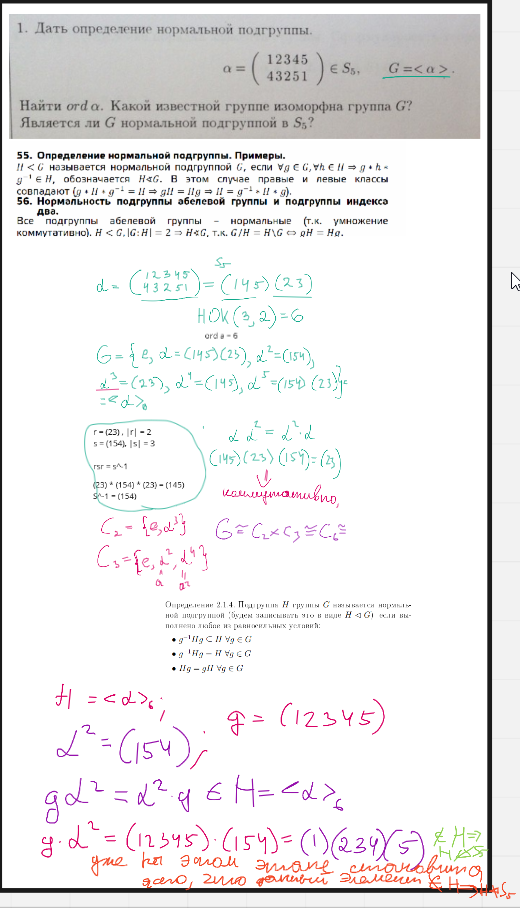 1. Дать определение нормальной подгруппы.
α = ( 12345
43251 ) ∈ S₅, G = < α >.
Найти ord α. Какой известной группе изоморфна группа G?
Является ли G нормальной подгруппой в S₅?
55. Определение нормальной подгруппы. Примеры.
H < G называется нормальной подгруппой G, если ∀g ∈ G, ∀h ∈ H ⇒ g * h *
g⁻¹ ∈ H, обозначается H⊲G. В этом случае правые и левые классы
совпадают (g * H * g⁻¹ = H ⇒ gH = Hg ⇒ H = g⁻¹ * H * g).
56. Нормальность подгруппы абелевой группы и подгруппы индекса
два.
Все подгруппы абелевой группы – нормальные (т.к. умножение
коммутативно). H < G, |G:H| = 2 ⇒ H⊲G, т.к. G/H = H\G ⇔ gH = Hg.
S₅
α = (12345
43251) = (145)(23)
НОК(3,2) = 6
ord a = 6
G = {e, α = (145)(23), α² = (154),
α³ = (23), α⁴ = (145), α⁵ = (154)(23)} =
= <α>₆
r = (23) , |r| = 2
s = (154), |s| = 3
rsr = s^-1
(23) * (154) * (23) = (145)
S^-1 = (154)
α α² = α² · α
(145)(23)(154) = (23)
коммутативно,
C₂ = {e, α³}
C₃ = {e, α², α⁴}
a a²
G ≅ C₂ × C₃ ≅ C₆ ≅
Определение 2.1.4. Подгруппа H группы G называется нормаль-
ной подгруппой (будем записывать это в виде H ⊲ G) если вы-
полнено любое из равносильных условий:
• g⁻¹Hg ⊆ H ∀g ∈ G
• g⁻¹Hg = H ∀g ∈ G
• Hg = gH ∀g ∈ G
H = <α>₆;
g = (12345)
α² = (154);
gα² = α² · g ∈ H = <α>₆
g · α² = (12345) · (154) = (1)(234)(5) ∉ H ⇒
уже на этом этапе становится
ясно, что данный элемент ∉ H ⇒